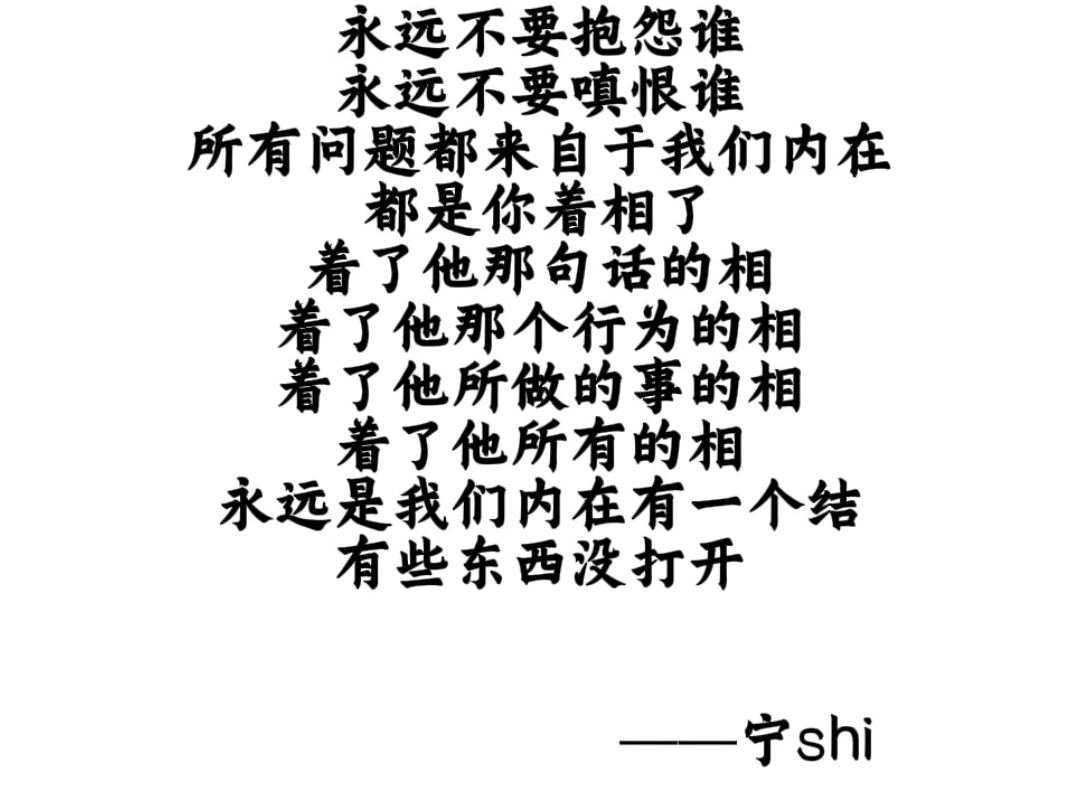 永远不要抱怨谁
永远不要嗔恨谁
所有问题都来自于我们内在
都是你着相了
着了他那句话的相
着了他那个行为的相
着了他所做的事的相
着了他所有的相
永远是我们内在有一个结
有些东西没打开
——宁shi